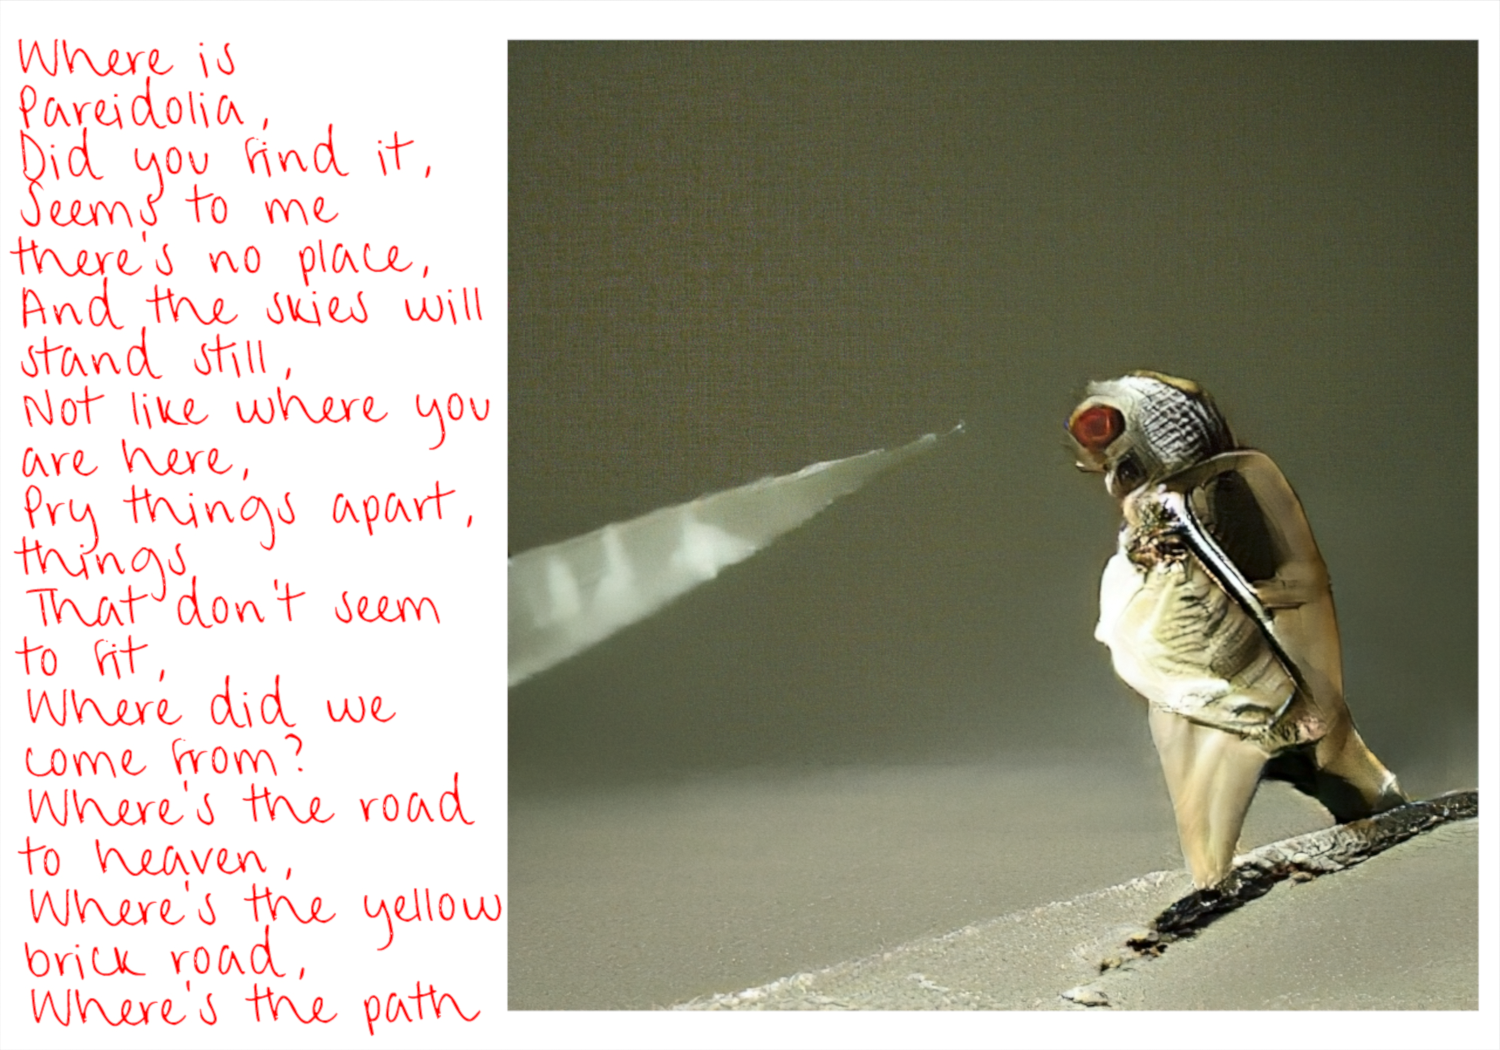 Where is
Pareidolia,
Did you find it,
Seems to me
there's no place,
And the skies will
stand still,
Not like where you
are here,
Pry things apart,
things
That don't seem
to fit,
Where did we
come from?
Where's the road
to heaven,
Where's the yellow
brick road,
Where's the path